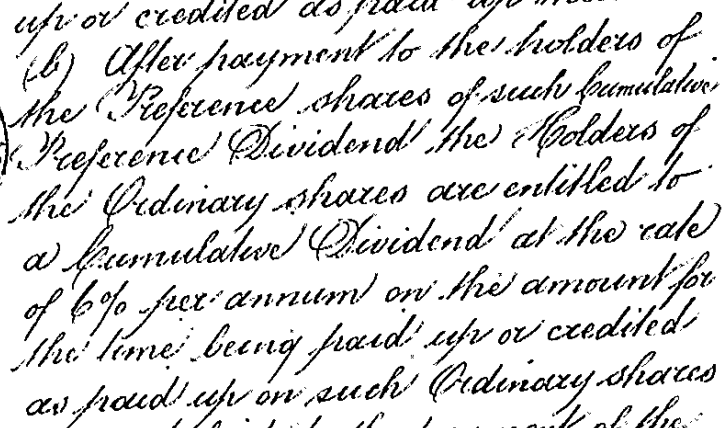 up or credited as paid up
(b) After payment to the holders of
the Preference shares of such Cumulative
Preference Dividend the Holders of
the Ordinary shares are entitled to
a Cumulative Dividend at the rate
of 6% per annum on the amount for
the time being paid up or credited
as paid up on such Ordinary shares
of the